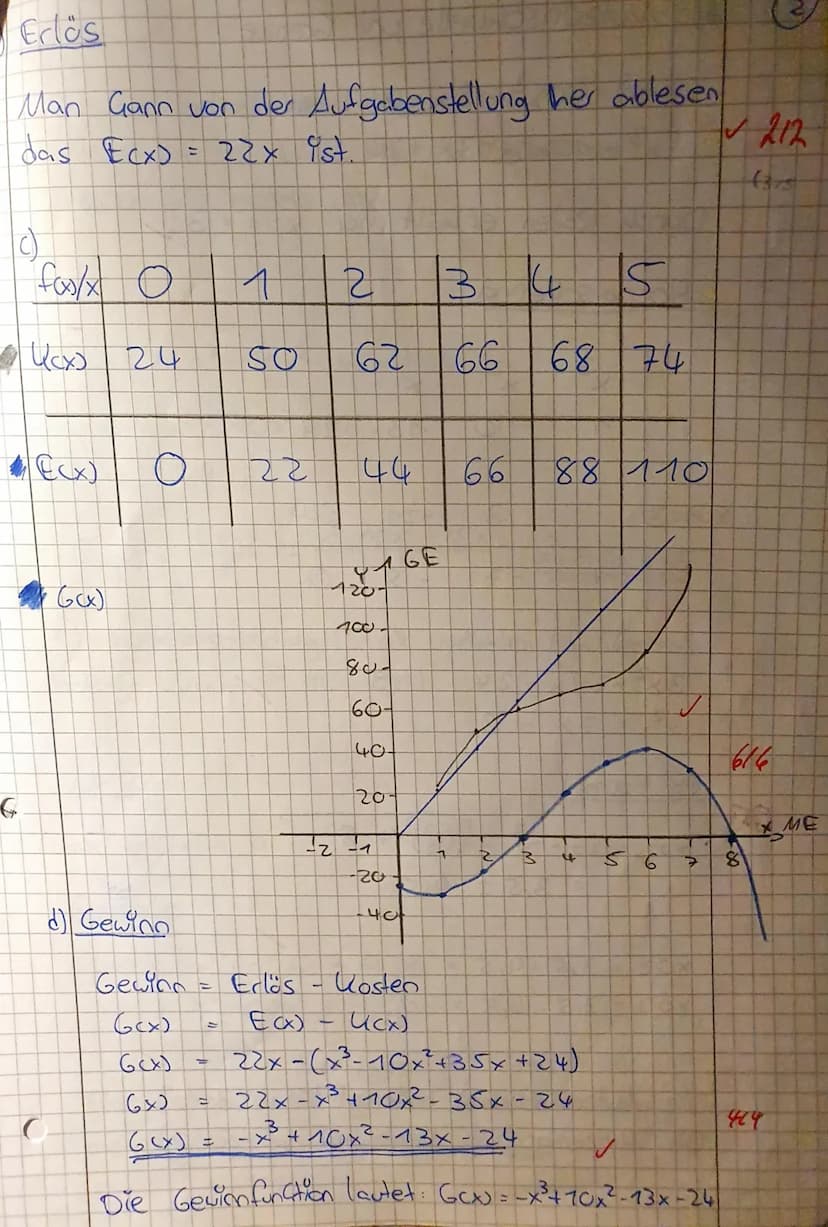 2
Erlös
Man Gann von der Aufgabenstellung her ablesen
das E(x) = 22x ist.
✓ 2/2
c)
f(x)/x 0 1 2 3 4 5
K(x) 24 50 62 66 68 74
E(x) 0 22 44 66 88 110
G(x)
y GE
120
100
80
60
✓
40
6/6
20
x ME
-2 -1 1 2 3 4 5 6 7 8
-20
-40
d) Gewinn
Gewinn = Erlös - Kosten
G(x) = E(x) - K(x)
G(x) = 22x - (x³ - 10x² + 35x + 24)
Gx) = 22x - x³ + 10x² - 35x - 24
G(x) = -x³ + 10x² - 13x - 24
✓ 4/4
Die Gewinnfunction lautet: G(x) = -x³ + 10x² - 13x - 24